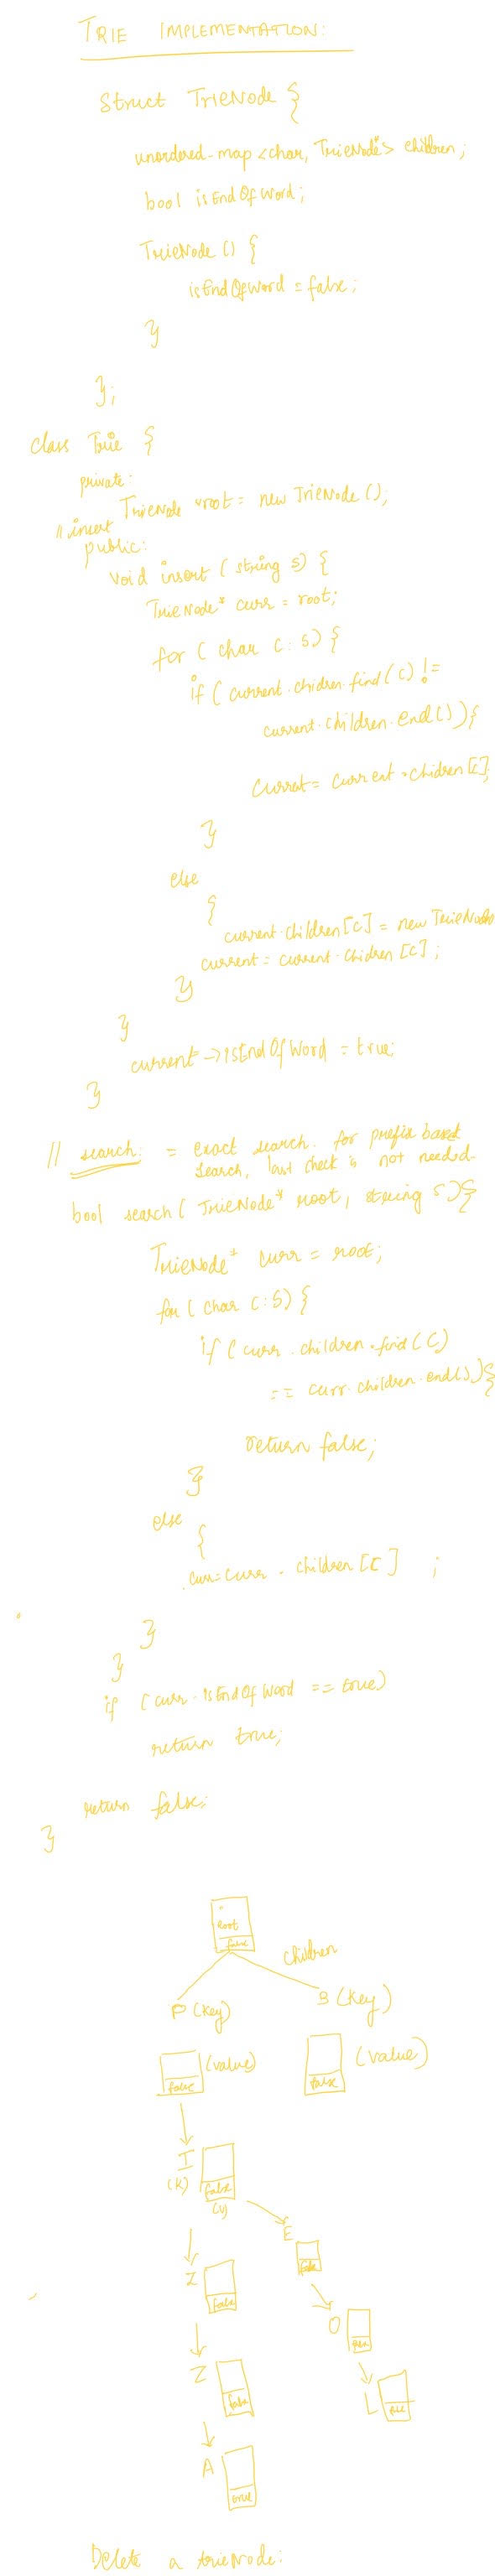 TRIE IMPLEMENTATION:
Struct TrieNode {
unordered_map <char, TrieNode*> children;
bool isEndOfWord;
TrieNode () {
isEndOfWord = false;
}
};
class Trie {
private:
TrieNode *root = new TrieNode ();
// insert
public:
void insert ( string s) {
TrieNode* curr = root;
for ( char c : s) {
if ( current.chidren.find (c) !=
current.children.end()) {
Curret = current.chidren [c];
}
else
{
current.children [c] = new TrieNode
current = current.chidren [c] ;
}
}
current -> isEndOfWord = true;
}
// search: = exact search. for prefix based
search, last check is not needed.
bool search ( TrieNode* root, string s) {
TrieNode* curr = root;
for ( char c : s) {
if ( curr.children.find (c)
== curr.children.end()) {
return false;
}
else
{
curr = curr.children [c] ;
}
}
if (curr.isEndOf Word == true)
return true;
return false;
}
Root
false
children
P (key)
B (key)
(value)
(value)
false
false
I
(K)
false
(V)
E
false
Z
false
O
false
Z
false
L
A
true
Delete a trieNode: